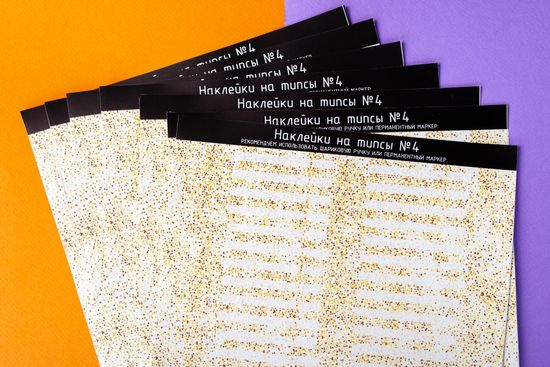 Наклейки на типсы №4
Наклейки на типсы №4
Наклейки на типсы №4
Наклейки на типсы №4
Наклейки на типсы №4
РЕКОМЕНДУЕМ ИСПОЛЬЗОВАТЬ ШАРИКОВУЮ РУЧКУ ИЛИ ПЕРМАНЕНТНЫЙ МАРКЕР
Наклейки на типсы №4
РЕКОМЕНДУЕМ ИСПОЛЬЗОВАТЬ ШАРИКОВУЮ РУЧКУ ИЛИ ПЕРМАНЕНТНЫЙ МАРКЕР